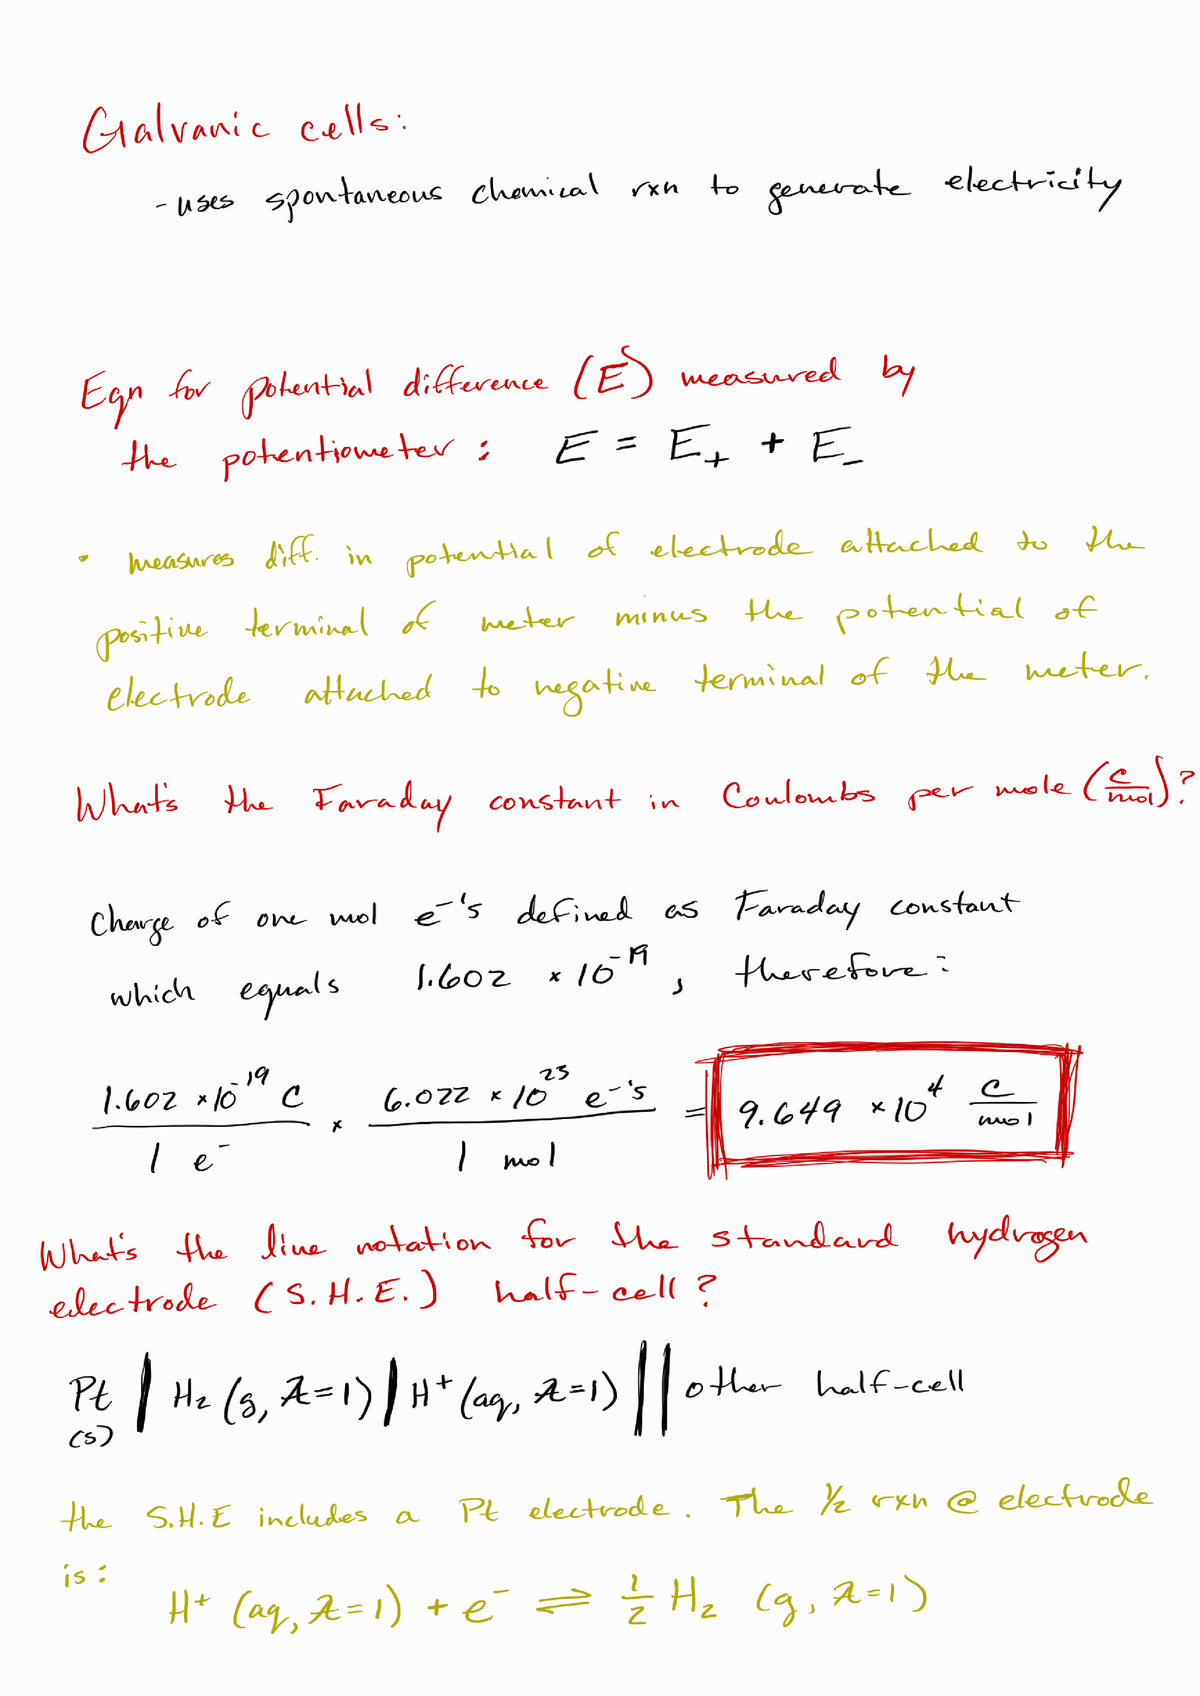 Galvanic cells:
- uses spontaneous chemical rxn to generate electricity
Eqn for potential difference (E) measured by
the potentiometer : E = E₊ + E₋
• measures diff. in potential of electrode attached to the
positive terminal of meter minus the potential of
electrode attached to negative terminal of the meter.
What's the Faraday constant in Coulombs per mole (C/mol)?
Charge of one mol e⁻'s defined as Faraday constant
which equals 1.602 × 10⁻¹⁹ , therefore:
1.602 × 10⁻¹⁹ C / 1 e⁻ × 6.022 × 10²³ e⁻'s / 1 mol = 9.649 × 10⁴ C/mol
What's the line notation for the standard hydrogen
electrode (S.H.E.) half-cell?
Pt (s) | H₂ (g, A=1) | H⁺ (aq, A=1) || other half-cell
the S.H.E includes a Pt electrode. The ½ rxn @ electrode
is:
H⁺ (aq, A=1) + e⁻ ⇌ ½ H₂ (g, A=1)